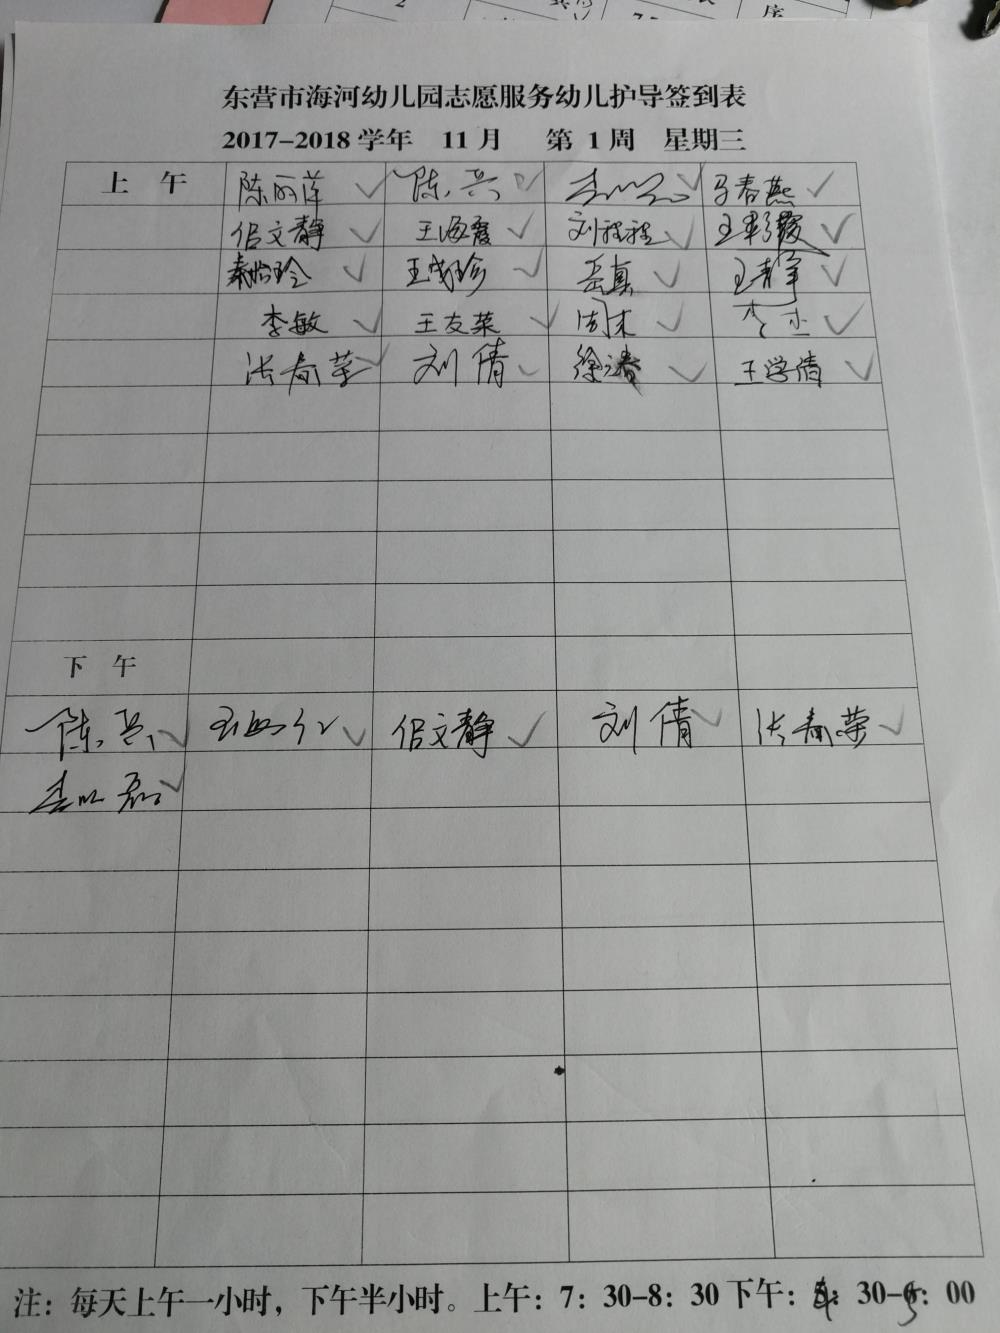 东营市海河幼儿园志愿服务幼儿护导签到表
2017-2018 学年 11 月 第 1 周 星期三
上 午 陈丽萍 陈兴 马春燕
侣文静 王海霞 刘程程 王彩霞
秦怡玲 王成珍 岳真 王青军
李敏 王友菜 周末 李杰
张春荣 刘倩 徐 王学倩
下 午
陈兴 侣文静 刘倩 张春荣
李明磊
注：每天上午一小时，下午半小时。上午：7：30-8：30 下午：4：30-5：00